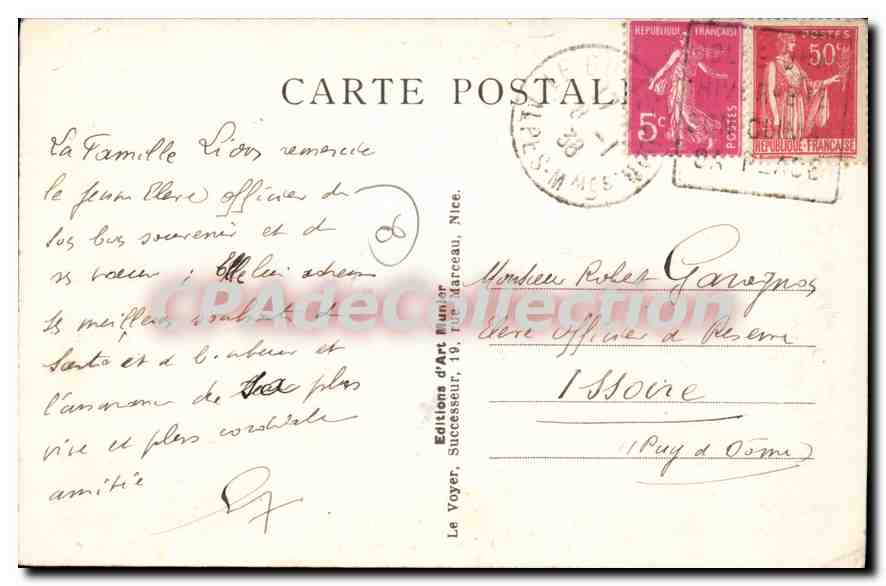 CARTE POSTALE
La Famille Lions remercie
le jeune Elève officier de
son bon souvenir et de
ses vœux ; Elle lui adresse
ses meilleurs souhaits de
Santé et de bonheur et
l'assurance de sa plus
vive et plus cordiale
amitié
8
Editions d'Art Munier
Le Voyer, Successeur, 19, rue Marceau, Nice.
REPUBLIQUE FRANÇAISE
5c
POSTES
POSTES
50c
REPUBLIQUE FRANÇAISE
38
ALPES-MMES
Monsieur Robert
Elève Officier de Réserve
Issoire
(Puy de Dôme)
CPAdeCollection